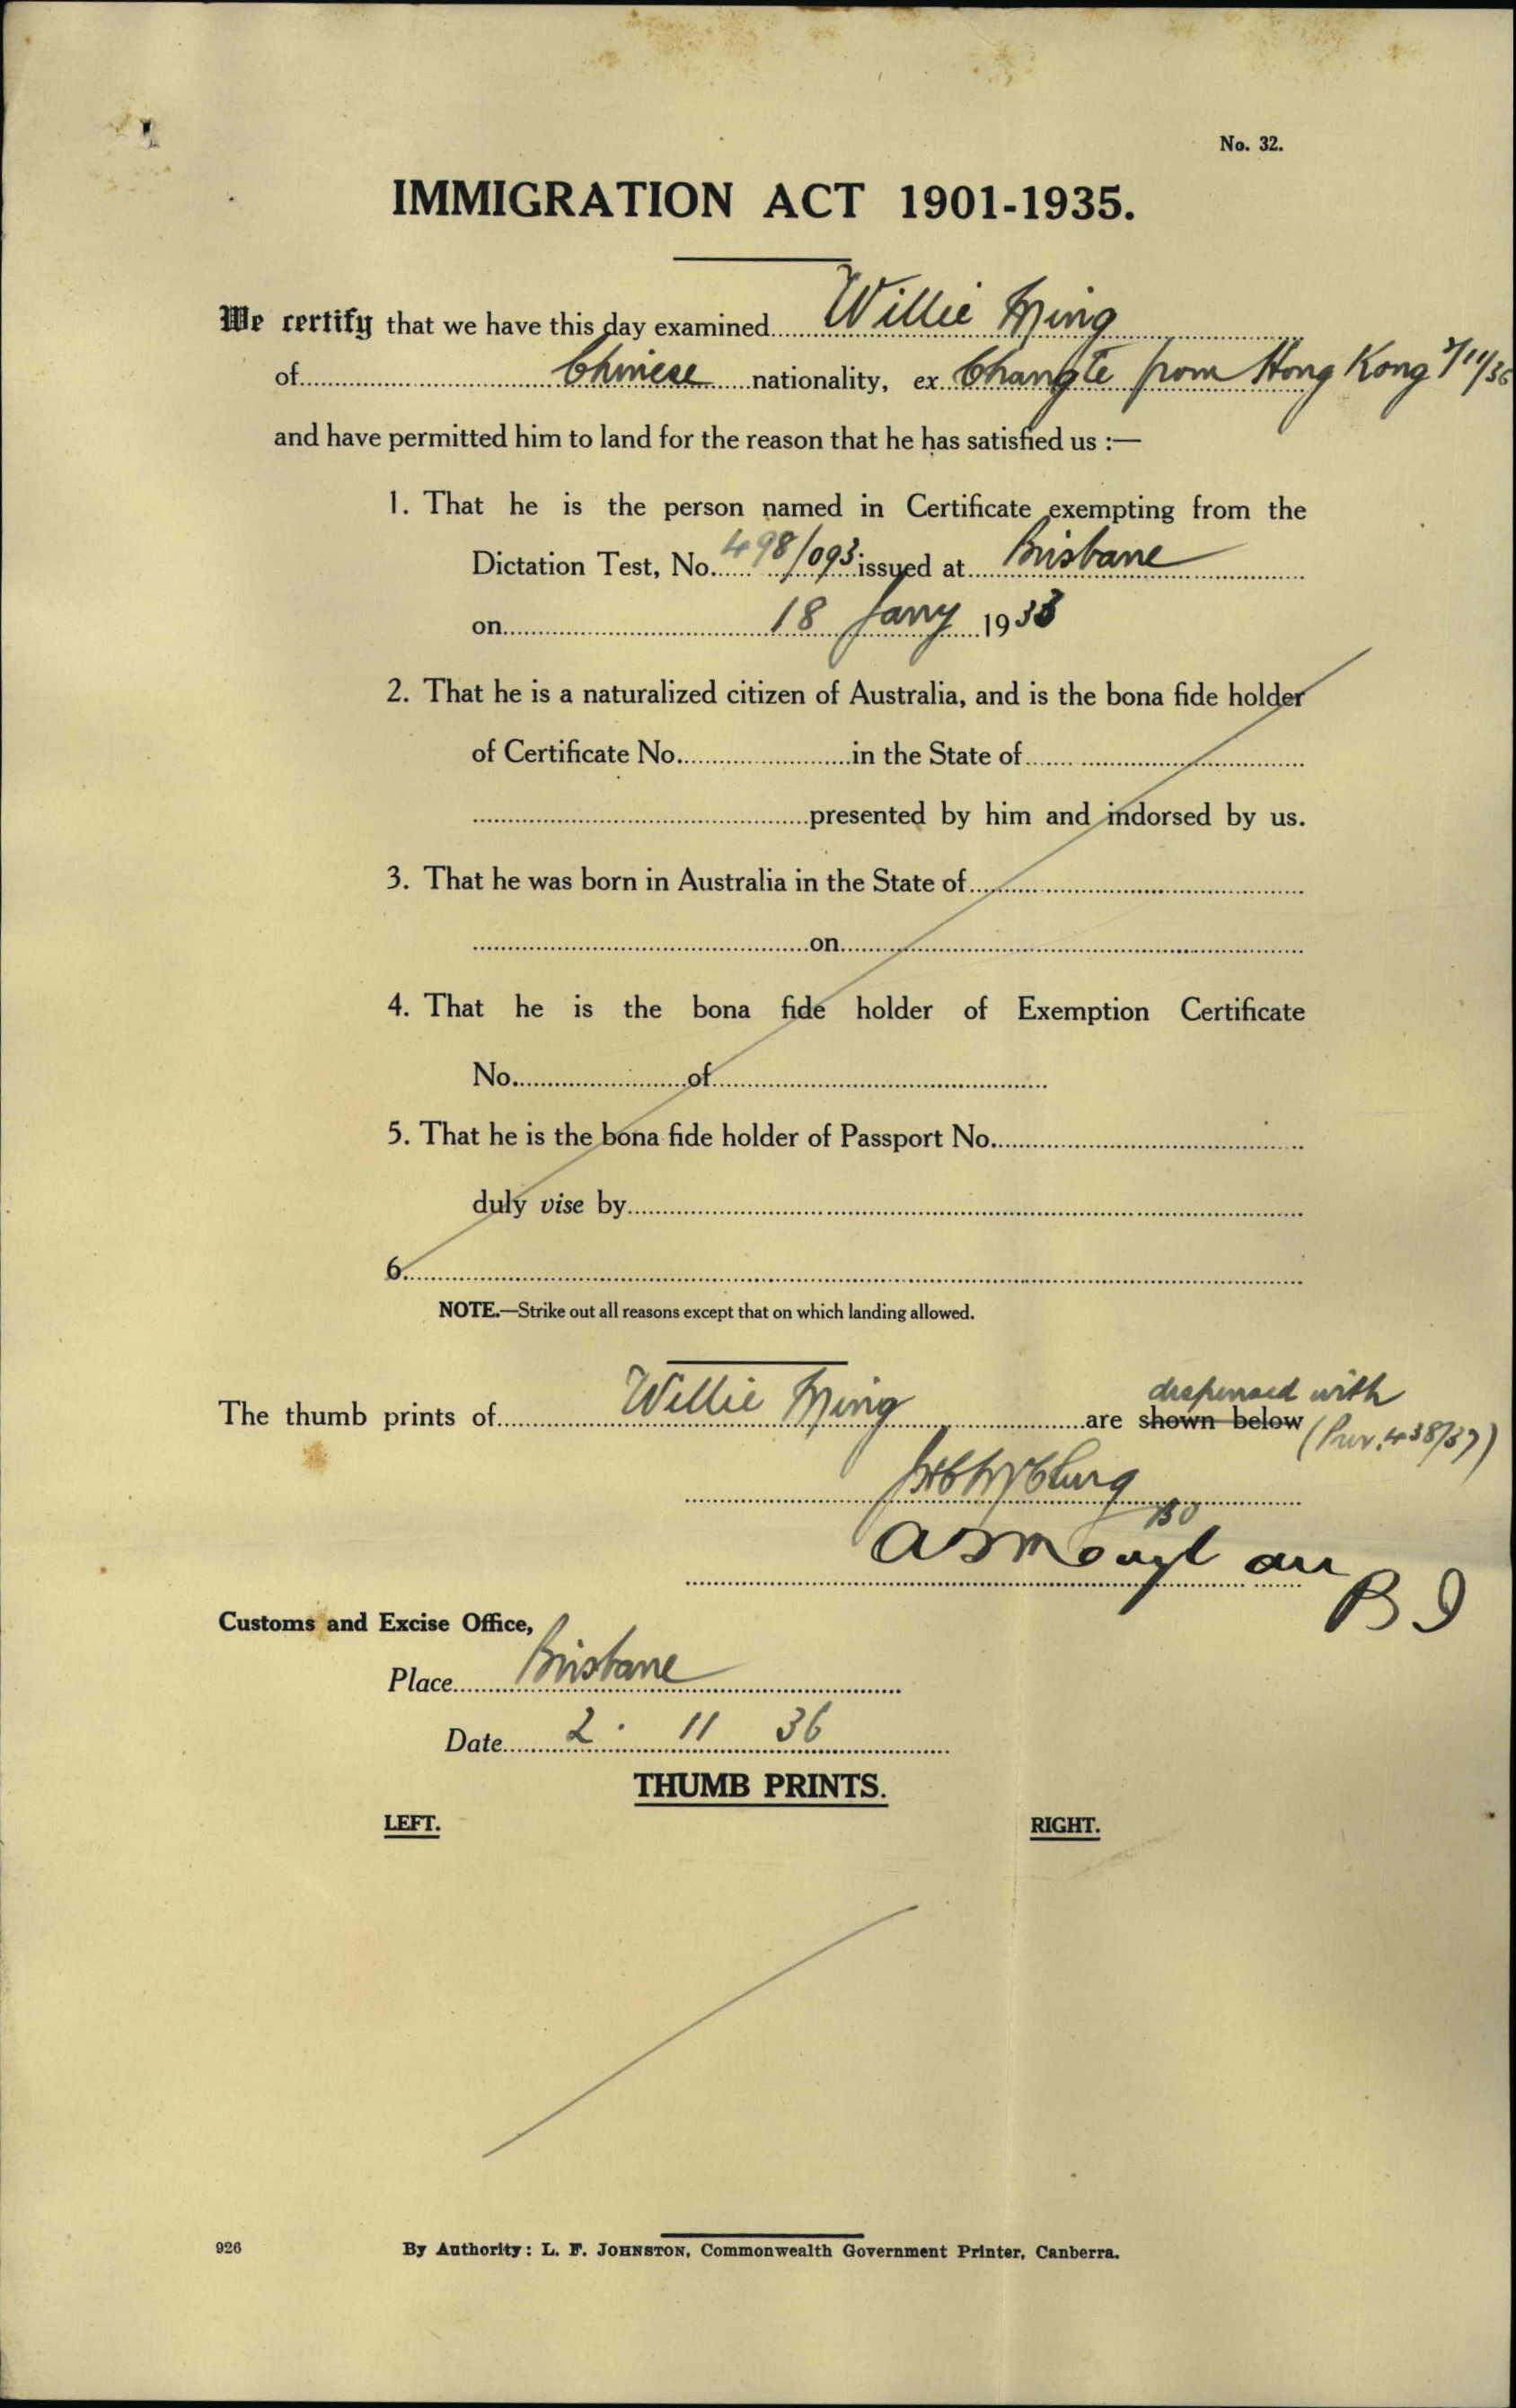 No. 32.
IMMIGRATION ACT 1901-1935.
We certify that we have this day examined Willie Ming
of Chinese nationality, ex Changte from Hong Kong 2/11/36
and have permitted him to land for the reason that he has satisfied us :—
1. That he is the person named in Certificate exempting from the
Dictation Test, No. 498/093 issued at Brisbane
on 18 Jany 1933
2. That he is a naturalized citizen of Australia, and is the bona fide holder
of Certificate No. in the State of
presented by him and indorsed by us.
3. That he was born in Australia in the State of
on
4. That he is the bona fide holder of Exemption Certificate
No. of
5. That he is the bona fide holder of Passport No.
duly vise by
6.
NOTE.—Strike out all reasons except that on which landing allowed.
dispensed with
The thumb prints of Willie Ming are shown below
438/37)
BO
B I
Customs and Excise Office,
Place Brisbane
Date 2 . 11 36
THUMB PRINTS.
LEFT. RIGHT.
926 By Authority: L. F. JOHNSTON, Commonwealth Government Printer, Canberra.